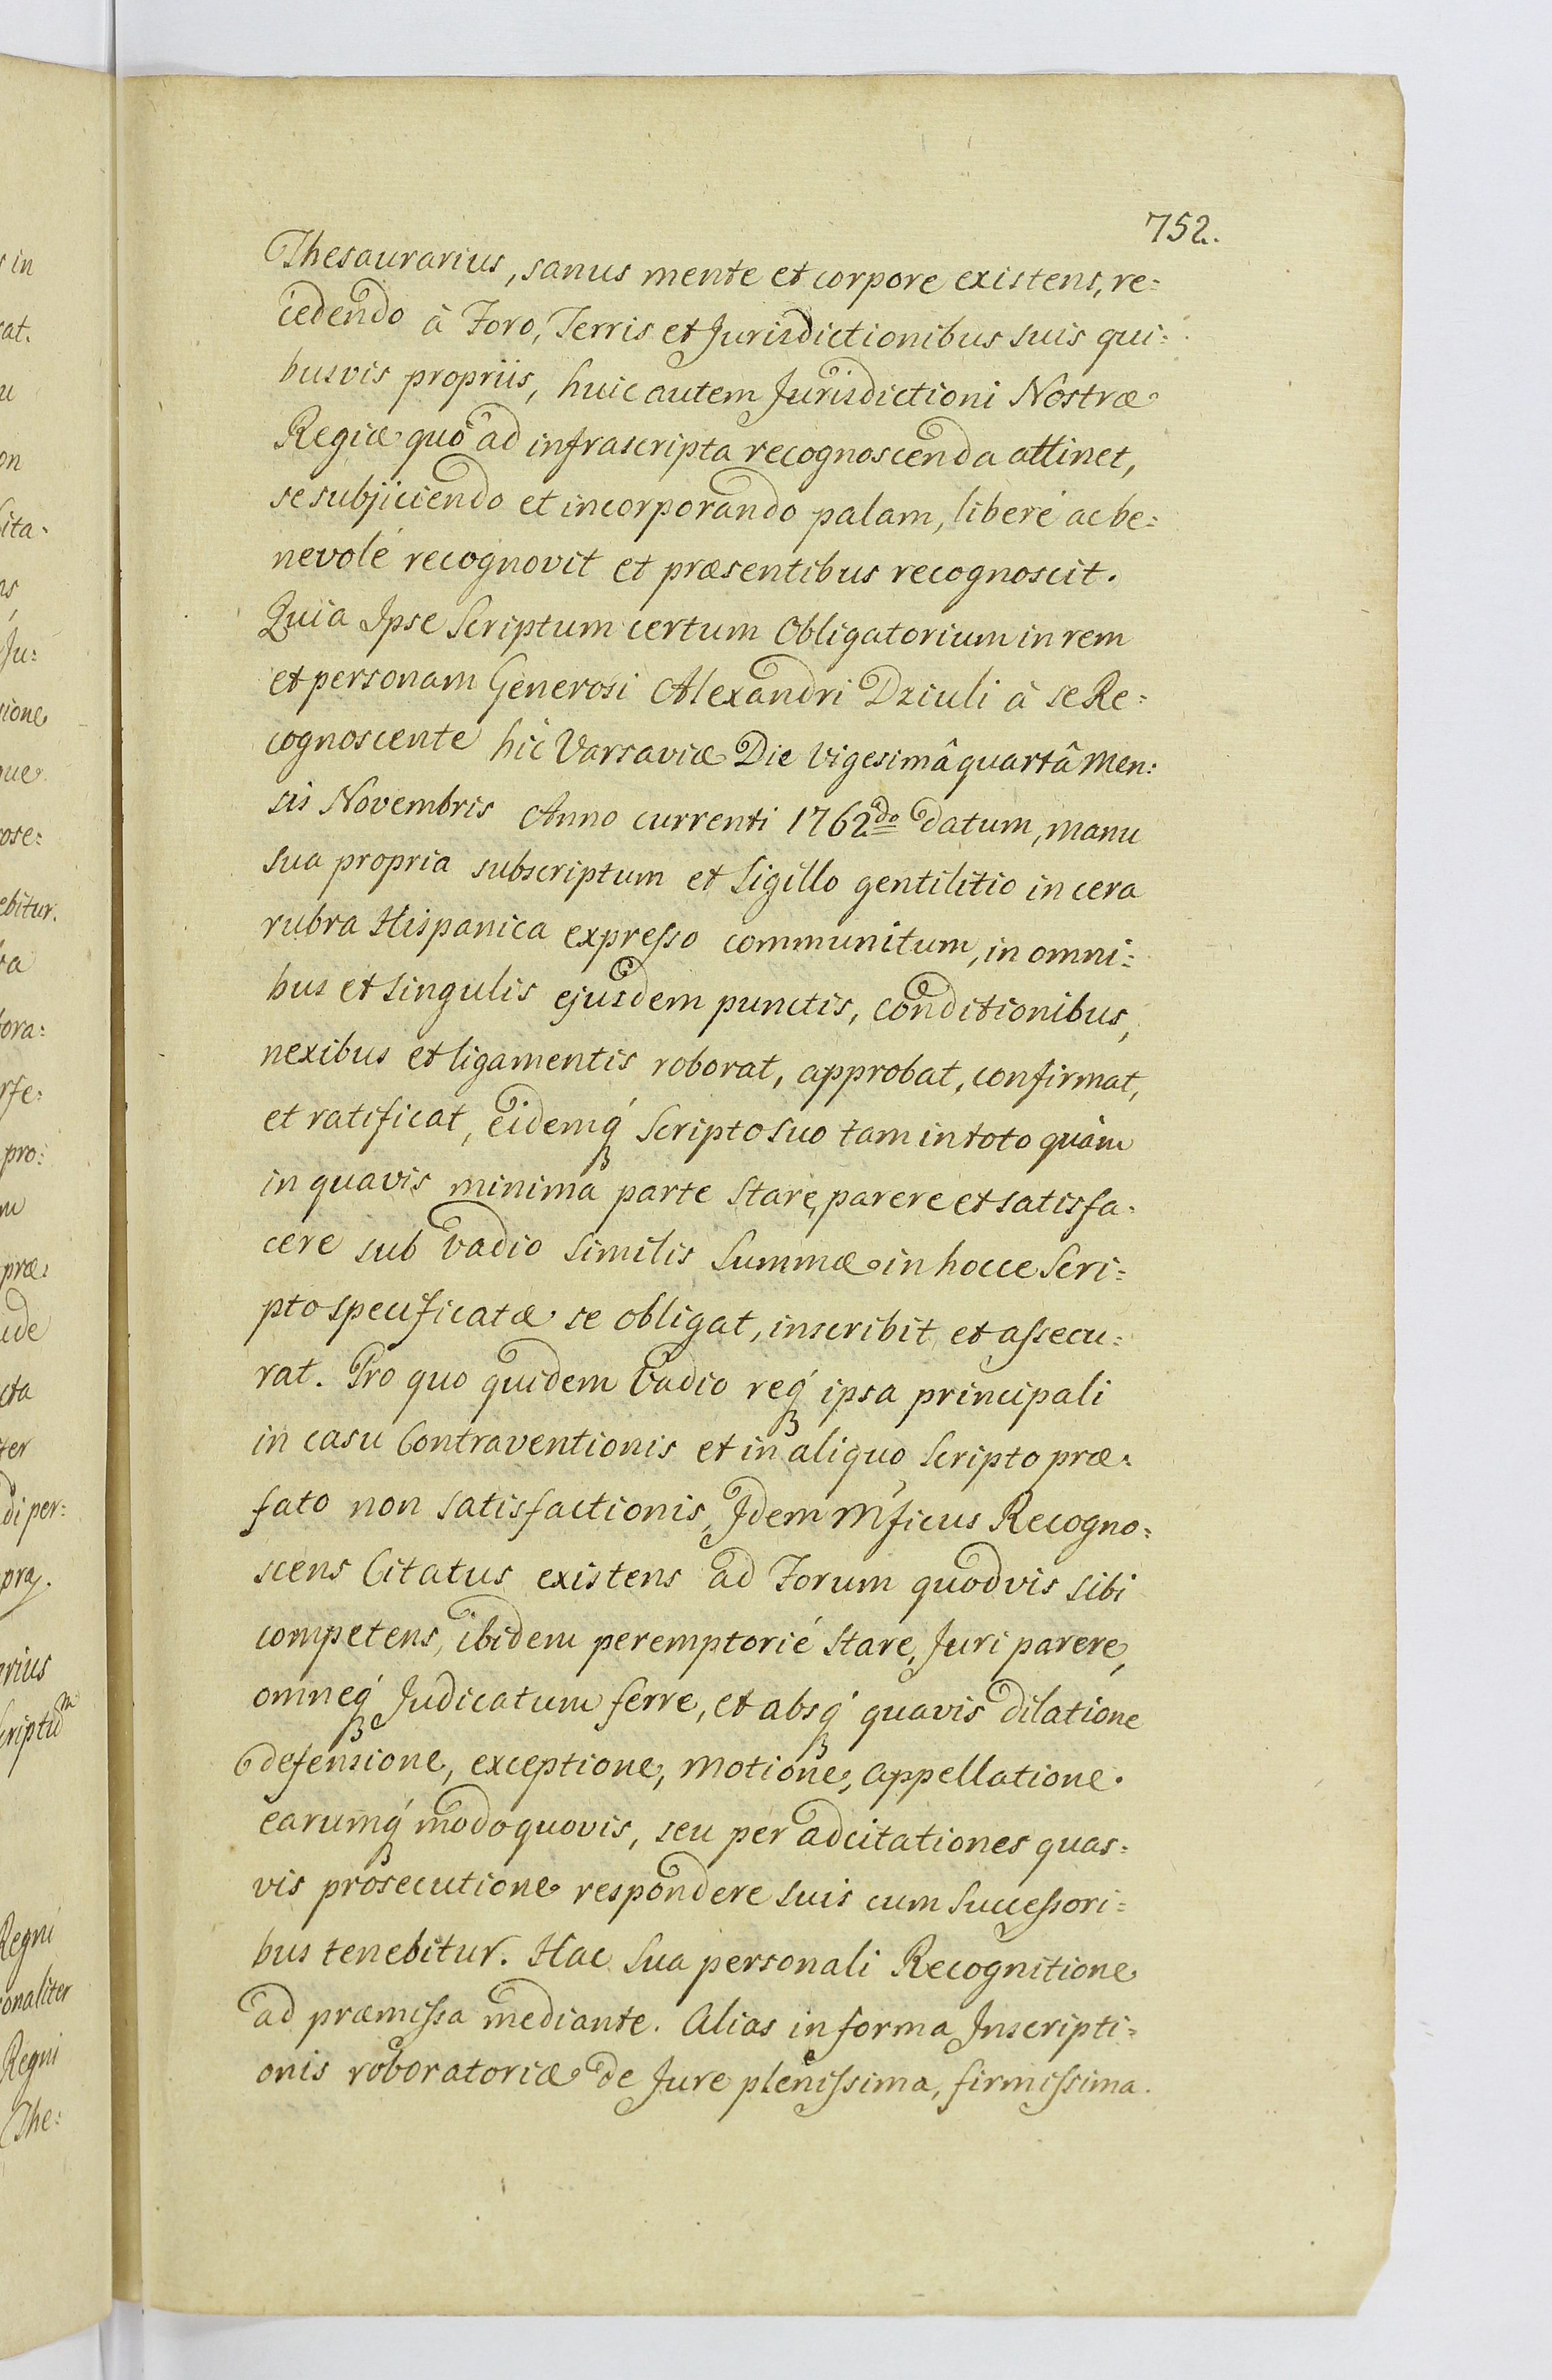 752.
Thesaurarius, sanus mente et corpore existens, re=
cedendo à Foro, Terris et Jurisdictionibus suis qui=
busvis propriis, huic autem Jurisdictioni Nostræ
Regiæ quò ad infrascripta recognoscenda attinet,
se subjiciendo et incorporando palam, liberé ac be=
nevolé recognovit et præsentibus recognoscit.
Quia Ipse Scriptum certum Obligatorium in rem
et personam Generosi Alexandri Dziuli à se Re=
cognoscente hic Varsaviæ Die Vigesimâ quartâ Men=
sis Novembris Anno currenti 1762do datum, manu
sua propria subscriptum et Sigillo gentilitio in cera
rubra Hispanica expresso communitum, in omni=
bus et singulis ejusdem punctis, conditionibus,
nexibus et ligamentis roborat, approbat, confirmat,
et ratificat, eidemq́ Scripto suo tam in toto quàm
in quavis minima parte stare, parere et satisfa=
cere sub vadio similis Summæ in hocce Scri=
pto specificatæ se obligat, inscribit et assecu=
rat. Pro quo quidem Vadio req́ ipsa principali
in casu Contraventionis et in aliquo Scripto præ=
fato non satisfactionis, Idem Mficus Recogno=
scens Citatus existens ad Forum quodvis sibi
competens, ibidem peremptorié stare, Juri parere,
omneq́ Judicatum ferre, et absq́ quavis dilatione
defensione, exceptione, motione, appellatione
earumq́ modo quovis, seu per adcitationes quas=
vis prosecutione respondere suis cum Successori=
bus tenebitur. Hac sua personali Recognitione
ad præmissa mediante. Alias in forma Inscripti=
onis roboratoriæ de Jure plenissima, firmissima.